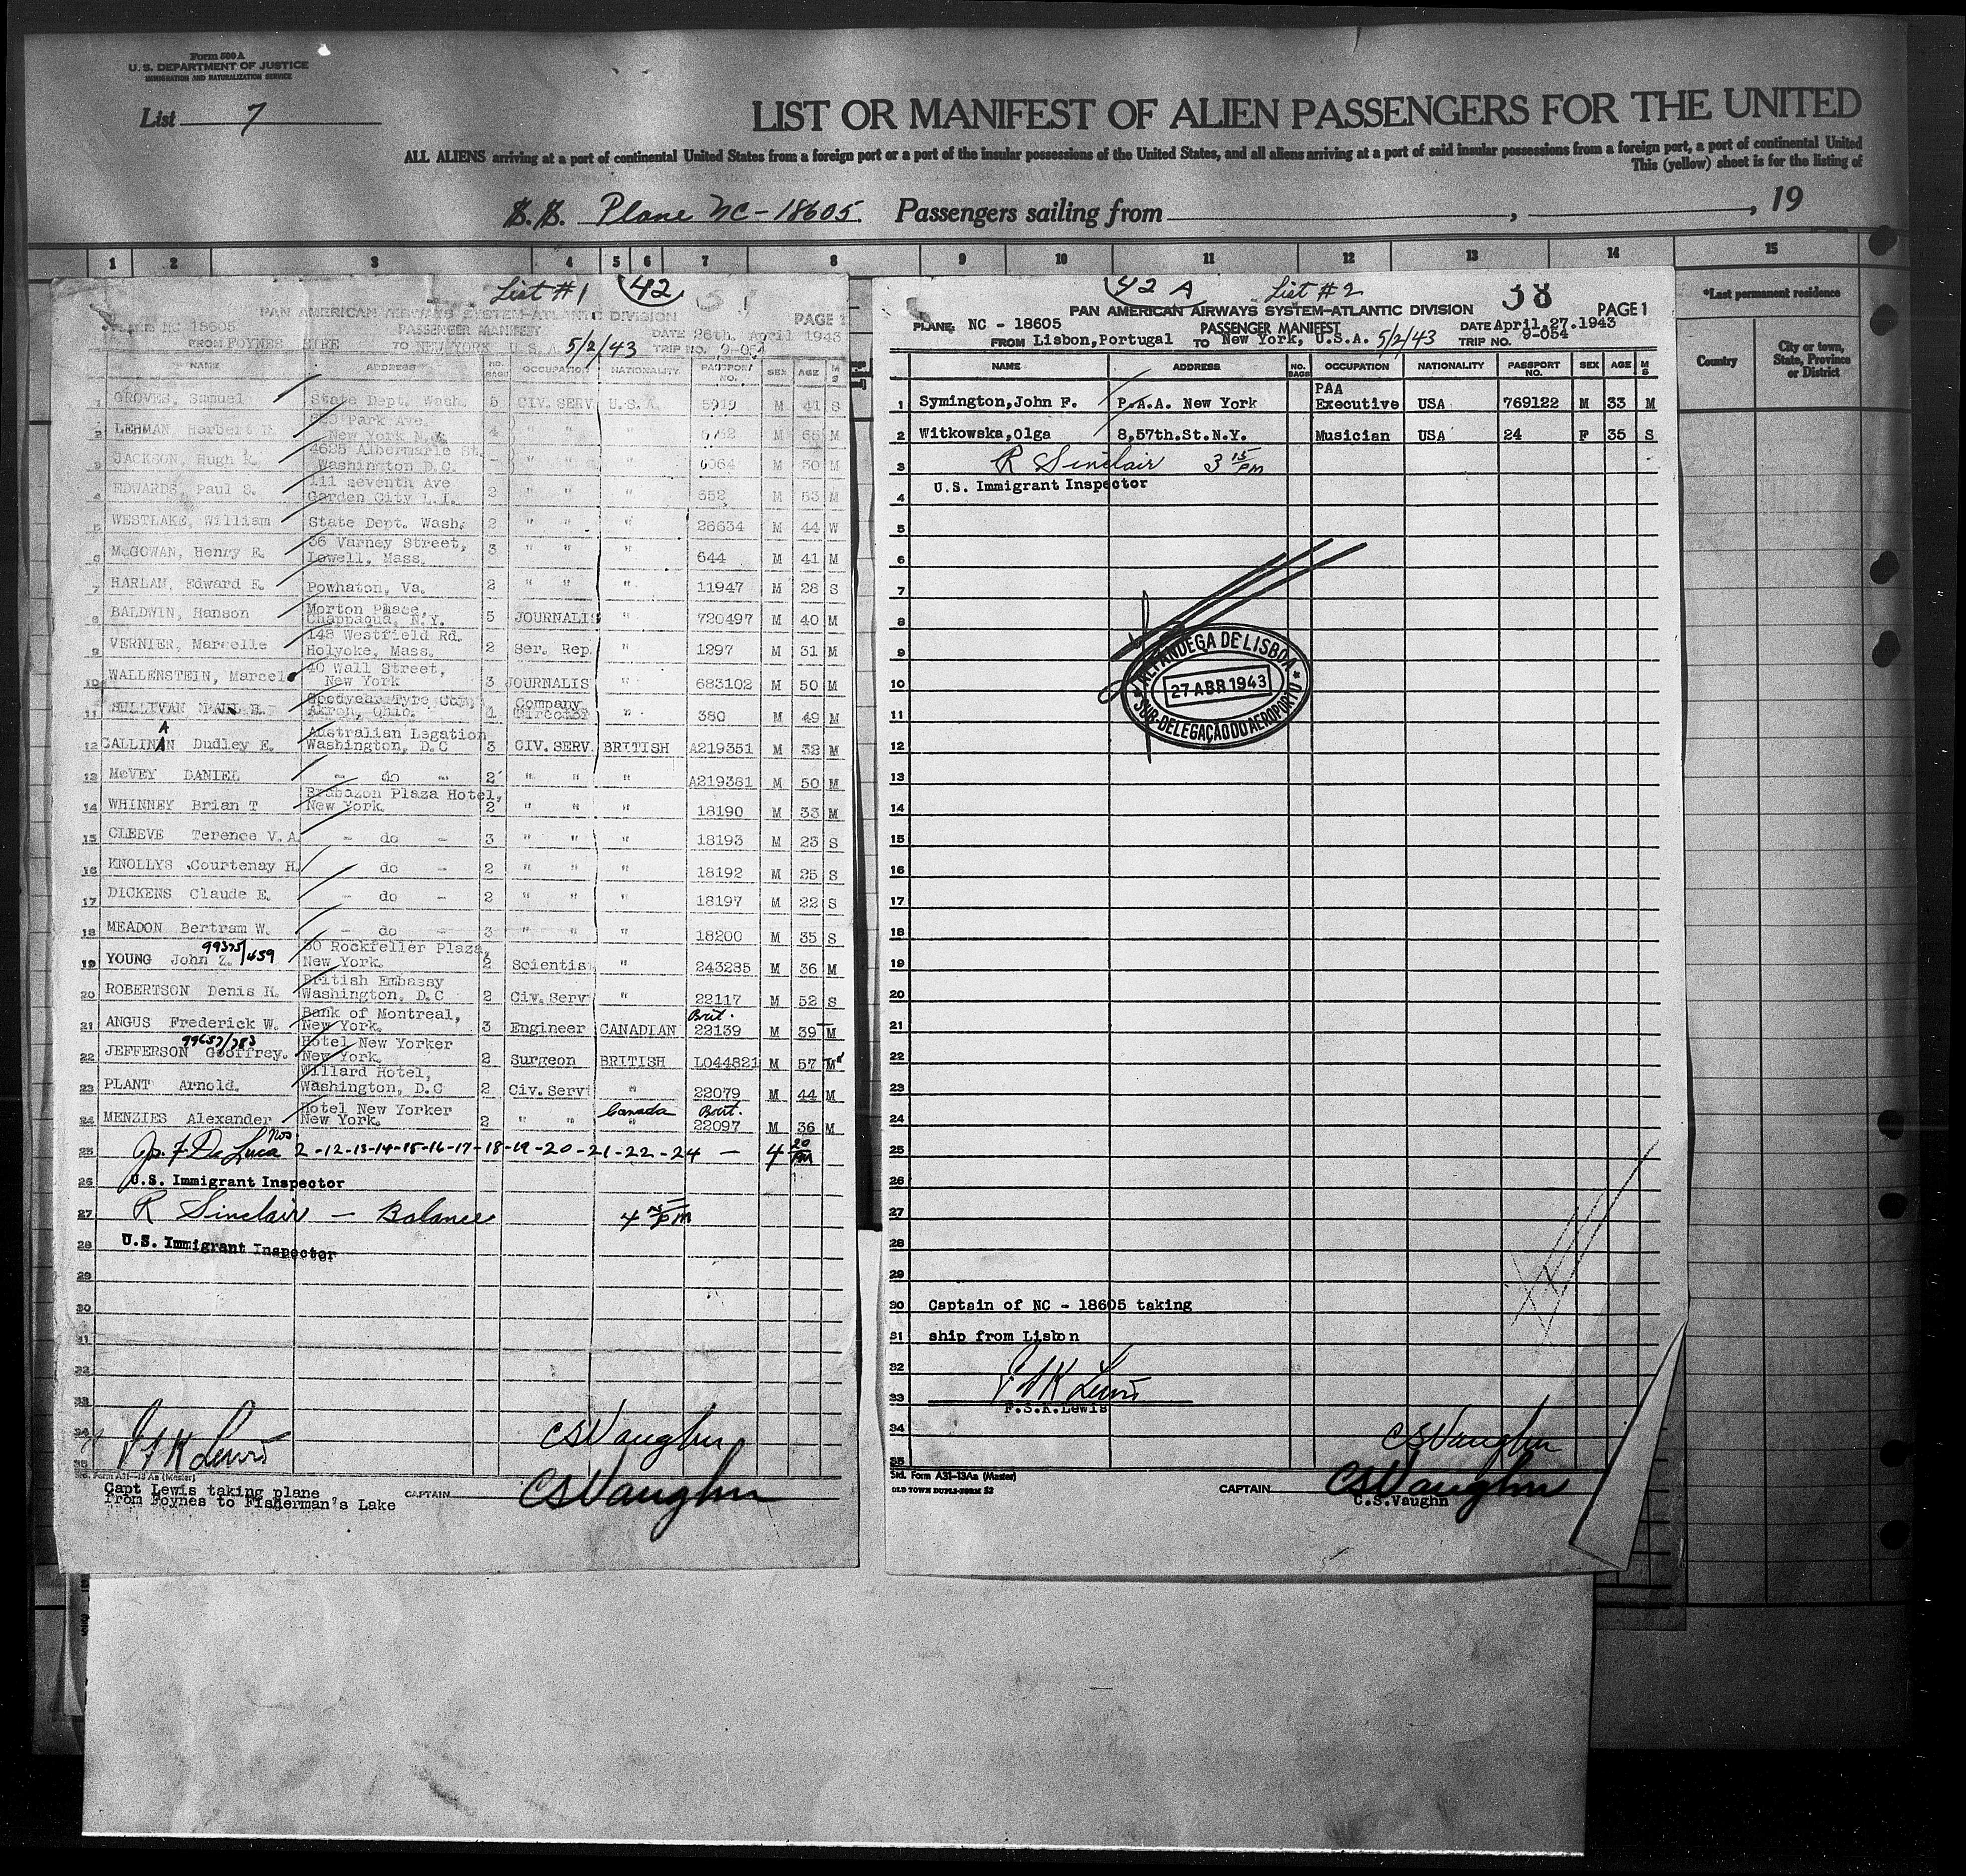 Form 500 A
U. S. DEPARTMENT OF JUSTICE
IMMIGRATION AND NATURALIZATION SERVICE
List 7
LIST OR MANIFEST OF ALIEN PASSENGERS FOR THE UNITED
ALL ALIENS arriving at a port of continental United States from a foreign port or a port of the insular possessions of the United States, and all aliens arriving at a port of said insular possessions from a foreign port, a port of continental United
This (yellow) sheet is for the listing of
S.S. Plane NC-18605 Passengers sailing from , , 19
1 2 3 4 5 6 7 8 9 10 11 12 13 14 15
*Last permanent residence
Country
City or town, State, Province or District
List #1 42
PAN AMERICAN AIRWAYS SYSTEM—ATLANTIC DIVISION PAGE 1
NC 18605 PASSENGER MANIFEST DATE 26th. April 1943
FROM FOYNES EIRE TO NEW YORK U.S.A. 5/2/43 TRIP NO. 9-054
NAME ADDRESS NO. BAGS OCCUPATION NATIONALITY PASSPORT NO. SEX AGE M S
1 GROVES, Samuel State Dept. Wash. 5 CIV. SERV U.S.A. 5919 M 41 S
2 LEHMAN, Herbert H. 820 Park Ave. New York N.Y. 4 " " " M 65 M
3 JACKSON, Hugh R. 4625 Albermarle St. Washington D.C. - " " " 6064 M 30 M
4 EDWARDS, Paul S. 111 Seventh Ave Garden City L.I. 2 " " " 652 M 53 M
5 WESTLAKE, William State Dept. Wash. 2 " " " 26634 M 44 W
6 McGOWAN, Henry E. 36 Varney Street, Lowell, Mass. 3 " " " 644 M 41 M
7 HARLAN, Edward E. Powhaton, Va. 2 " " " 11947 M 28 S
8 BALDWIN, Hanson Morton Place, Chappaqua, N.Y. 5 JOURNALIS " 720497 M 40 M
9 VERNIER, Marcelle 148 Westfield Rd. Holyoke, Mass. 2 Ser. Rep. " 1297 M 31 M
10 WALLENSTEIN, Marcel 40 Wall Street, New York 3 JOURNALIS " 683102 M 50 M
11 SULLIVAN Goodyear Tyre Com, Akron, Ohio. 1 Company Director " 380 M 49 M
12 CALLINAN Dudley E. Australian Legation Washington, D.C 3 CIV. SERV. BRITISH A219351 M 32 M
A
13 McVEY DANIEL - do - 2 " " " A219381 M 50 M
14 WHINNEY Brian T Brabazon Plaza Hotel, New York. 2 " " " 18190 M 33 M
15 CLEEVE Terence V.A - do - 3 " " " 18193 M 23 S
16 KNOLLYS Courtenay H. - do - 2 " " " 18192 M 25 S
17 DICKENS Claude E. - do - 2 " " " 18197 M 22 S
18 MEADON Bertram W. - do - 3 " " " 18200 M 35 S
99375/459
19 YOUNG John Z. 30 Rockfeller Plaza, New York. 2 Scientist " 243285 M 36 M
20 ROBERTSON Denis H. British Embassy Washington, D.C 2 Civ. Serv " 22117 M 52 S
21 ANGUS Frederick W. Bank of Montreal, New York. 3 Engineer CANADIAN Brit. 22139 M 39 M
99657/783
22 JEFFERSON Geoffrey. Hotel New Yorker New York. 2 Surgeon BRITISH L044821 M 57 M
23 PLANT Arnold. Willard Hotel, Washington, D.C 2 Civ. Serv " 22079 M 44 M
24 MENZIES Alexander Hotel New Yorker New York. 2 " " Canada " Brit. 22097 M 36 M
25 Jos. F De Luca nos 2-12-13-14-15-16-17-18-19-20-21-22-24 — 4 20 PM
26 U.S. Immigrant Inspector
27 R Sinclair — Balance 4 15 PM
28 U.S. Immigrant Inspector
29
30
31
32
33
34 F S K Lewis CS Vaughn
35
Std. Form A31-13 Aa (Master)
Capt Lewis taking plane
from Foynes to Fisherman's Lake
CAPTAIN CS Vaughn
42 A List #2 38
PAN AMERICAN AIRWAYS SYSTEM—ATLANTIC DIVISION PAGE 1
PLANE NC - 18605 PASSENGER MANIFEST DATE April.27.1943
FROM Lisbon, Portugal TO New York, U.S.A. 5/2/43 TRIP NO. 9-054
NAME ADDRESS NO. BAGS OCCUPATION NATIONALITY PASSPORT NO. SEX AGE M S
1 Symington, John F. P.A.A. New York PAA Executive USA 769122 M 33 M
2 Witkowska, Olga 8,57th.St.N.Y. Musician USA 24 F 35 S
3 R Sinclair 3 15 PM
4 U.S. Immigrant Inspector
5
6
7
8
9
10
11
12
13
14
15
16
17
18
19
20
21
22
23
24
25
26
27
28
29
ALFANDEGA DE LISBOA
27 ABR 1943
SUB-DELEGAÇÃO DO AEROPORTO
30 Captain of NC - 18605 taking
31 ship from Lisbon
32
33 F S K Lewis
F.S.K.Lewis
34 CS Vaughn
35
Std. Form A31-13Aa (Master)
OLD TOWN DUPLI-FORM 52
CAPTAIN CS Vaughn
C.S.Vaughn